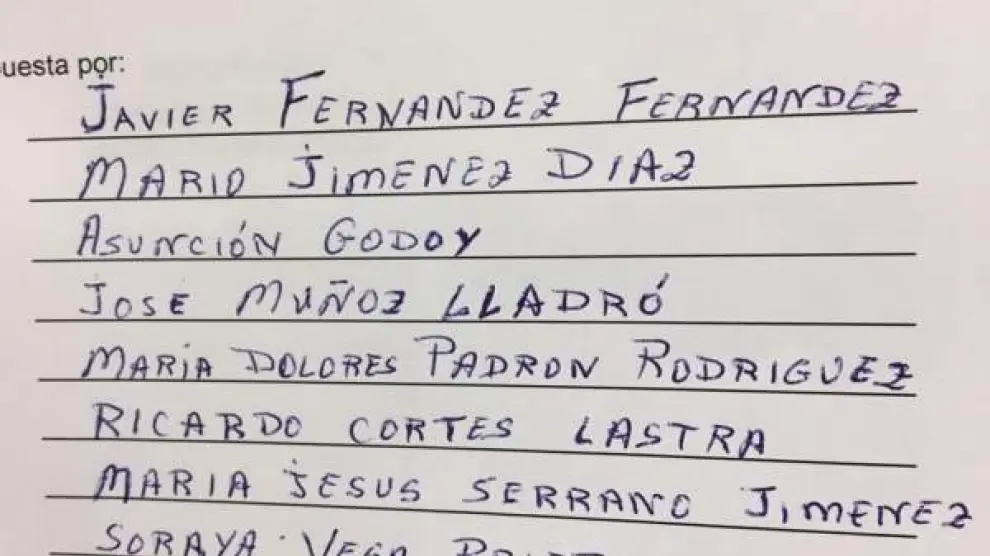 uesta por:
JAVIER FERNANDEZ FERNANDEZ
MARIO JIMENEZ DIAZ
ASUNCIÓN GODOY
JOSE MUÑOZ LLADRÓ
MARIA DOLORES PADRON RODRIGUEZ
RICARDO CORTES LASTRA
MARIA JESUS SERRANO JIMENEZ
SORAYA VEGA